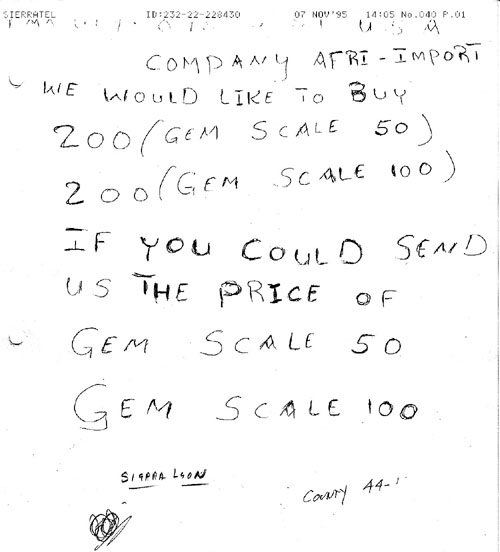 SIERRATEL ID:232-22-228430 07 NOV'95 14:05 No.040 P.01
U S A
COMPANY AFRI-IMPORT
WE WOULD LIKE TO BUY
200 (GEM SCALE 50)
200 (GEM SCALE 100)
IF YOU COULD SEND
US THE PRICE OF
GEM SCALE 50
GEM SCALE 100
SIERRA LEON
COUNTY 44-